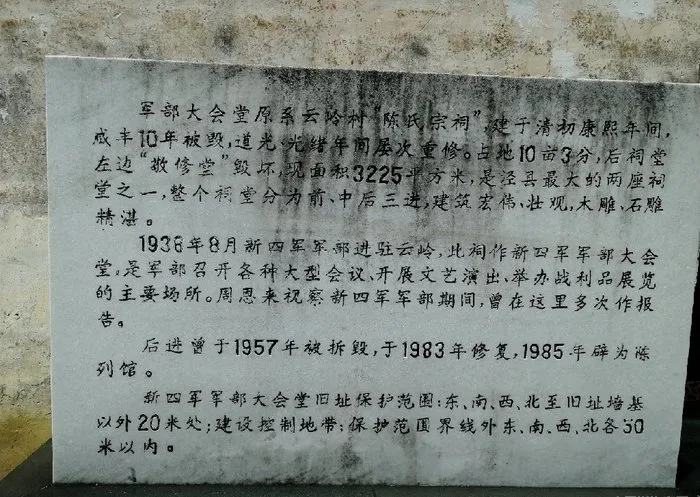 军部大会堂原系云岭村“陈氏宗祠”,建于清初康熙年间,
咸丰10年被毁,道光、光绪年间屡次重修。占地10亩3分,后祠堂
左边“敬修堂”毁坏,现面积3225平方米,是泾县最大的两座祠
堂之一,整个祠堂分为前、中后三进,建筑宏伟、壮观,木雕、石雕
精湛。
1938年8月新四军军部进驻云岭,此祠作新四军军部大会
堂,是军部召开各种大型会议、开展文艺演出、举办战利品展览
的主要场所。周恩来视察新四军军部期间,曾在这里多次作报
告。
后进曾于1957年被拆毁,于1983年修复,1985年辟为陈
列馆。
新四军军部大会堂旧址保护范围:东、南、西、北至旧址墙基
以外20米处;建设控制地带:保护范围界线外东、南、西、北各50
米以内。